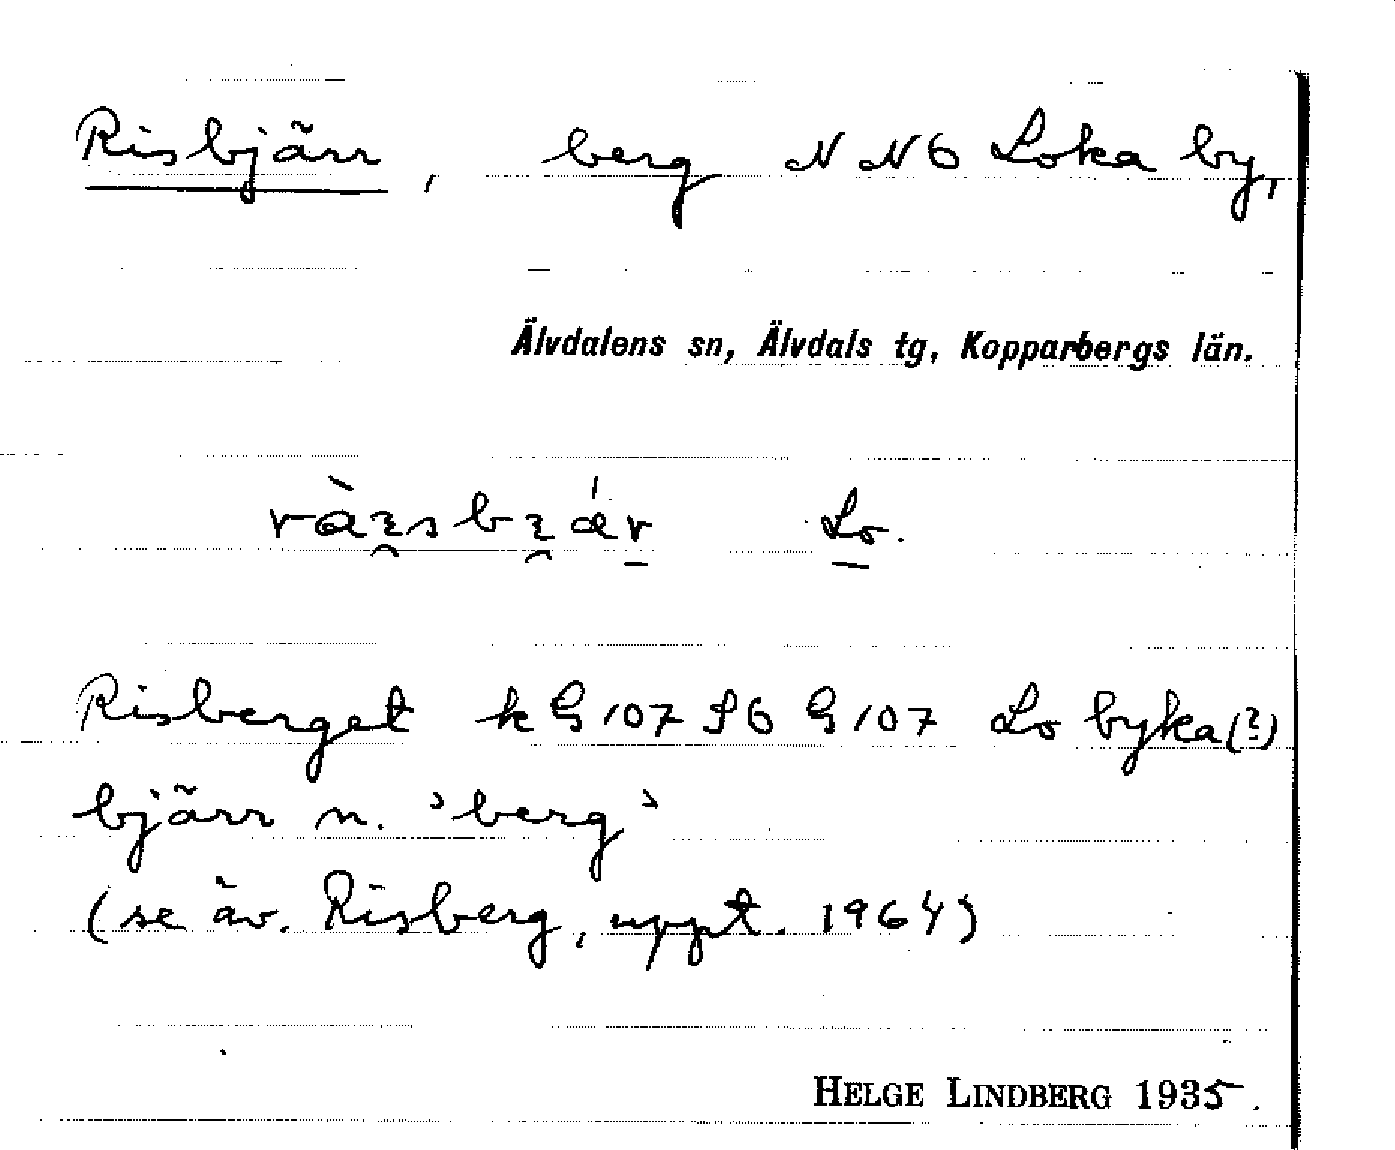 Risbjärr, berg NNÖ Loka by,
Älvdalens sn, Älvdals tg, Kopparbergs län.
Lo.
Risberget k G 107 SÖ G 107 Lo byka(?)
bjärr n. 'berg'
(se äv. Risberg, uppt. 1964)
HELGE LINDBERG 1935.